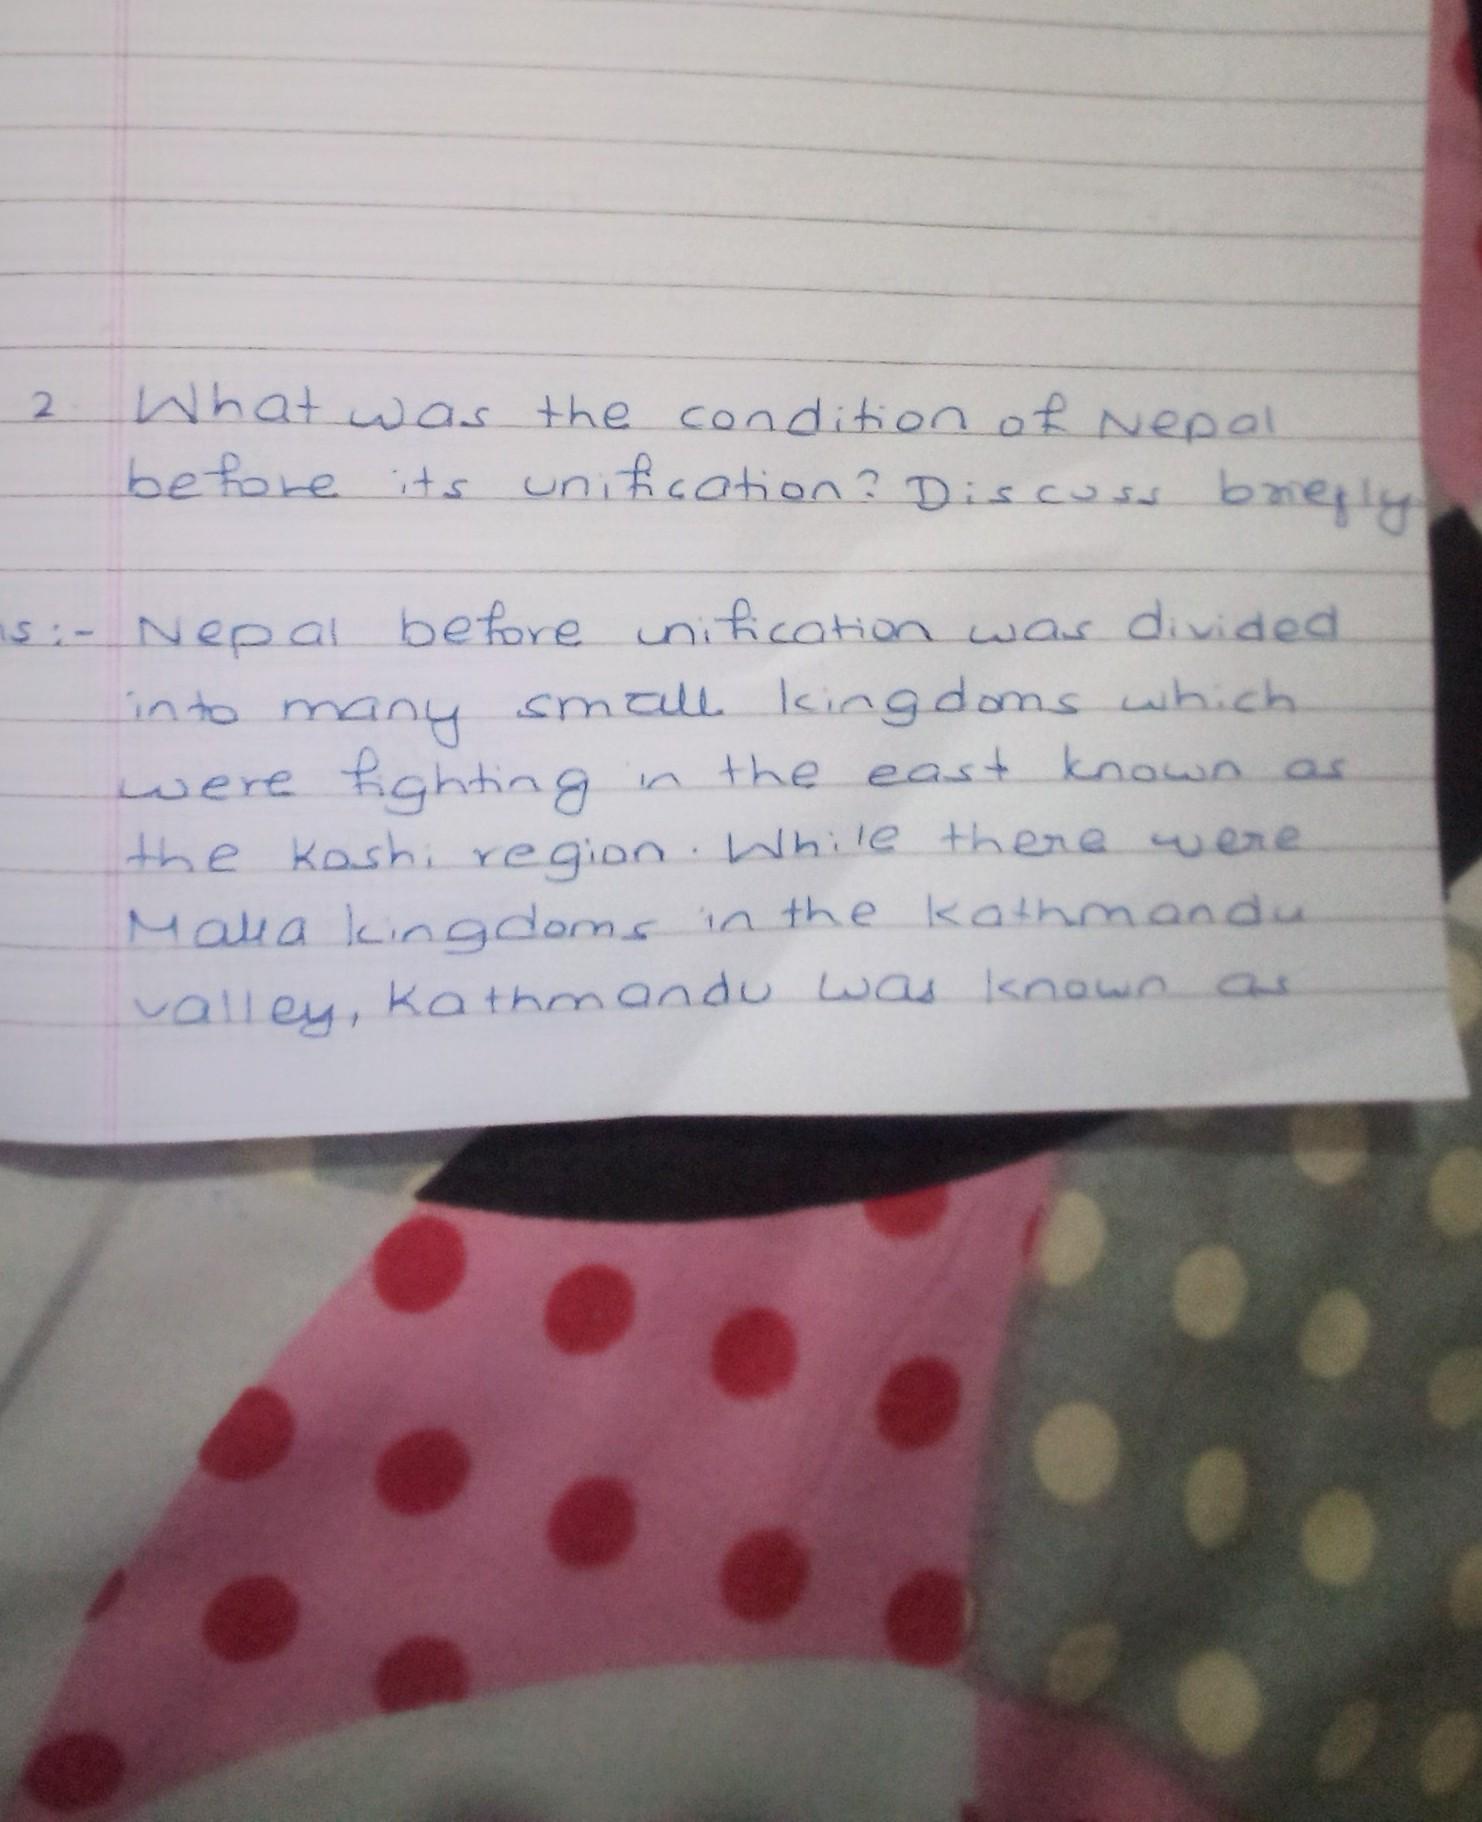 2. What was the condition of Nepal
before its unification? Discuss briefly
ns:- Nepal before unification was divided
into many small kingdoms which
were fighting in the east known as
the Koshi region. While there were
Malla kingdoms in the Kathmandu
valley, Kathmandu was known as